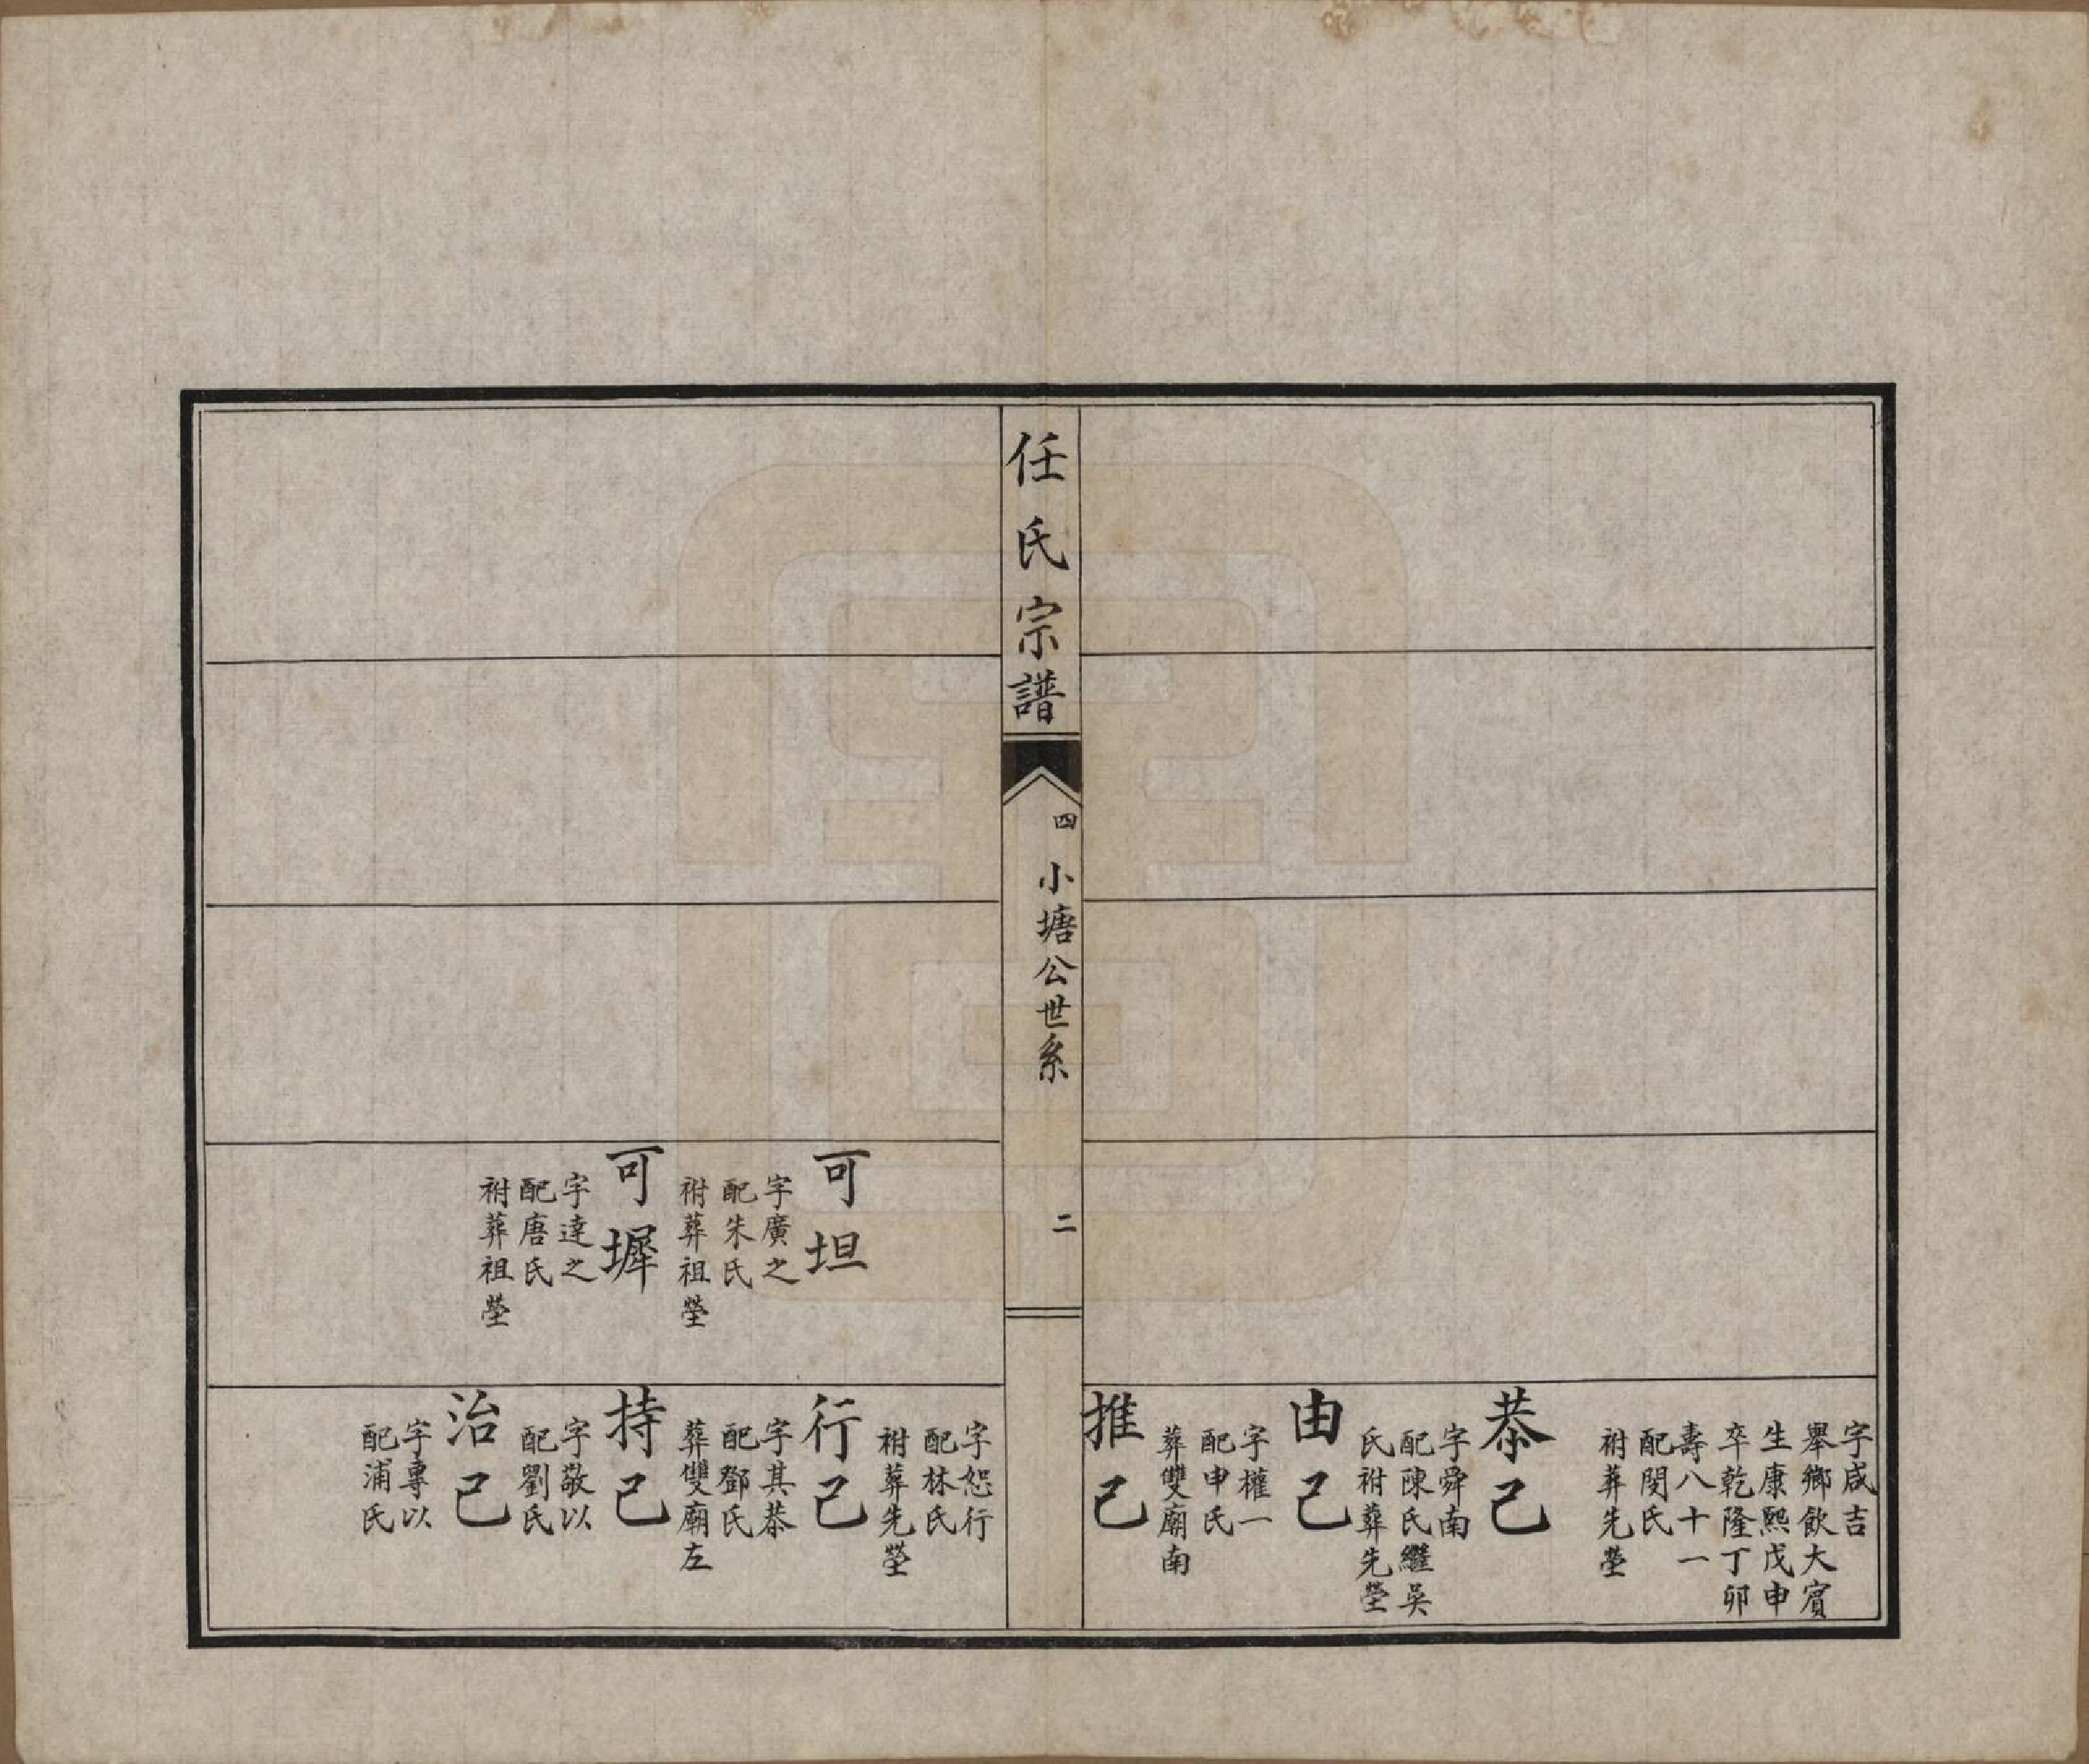 字咸吉
舉鄉飲大賓
生康熙戊申
卒乾隆丁卯
壽八十一
配閔氏
祔葬先塋
恭己
字舜南
配陳氏繼吳
氏祔葬先塋
由己
字權一
配申氏
葬雙廟南
推己
任氏宗譜
四
小塘公世系
二
可坦
字廣之
配朱氏
祔葬祖塋
可墀
字達之
配唐氏
祔葬祖塋
字恕行
配林氏
祔葬先塋
行己
字其恭
配鄧氏
葬雙廟左
持己
字敬以
配劉氏
治己
字專以
配浦氏